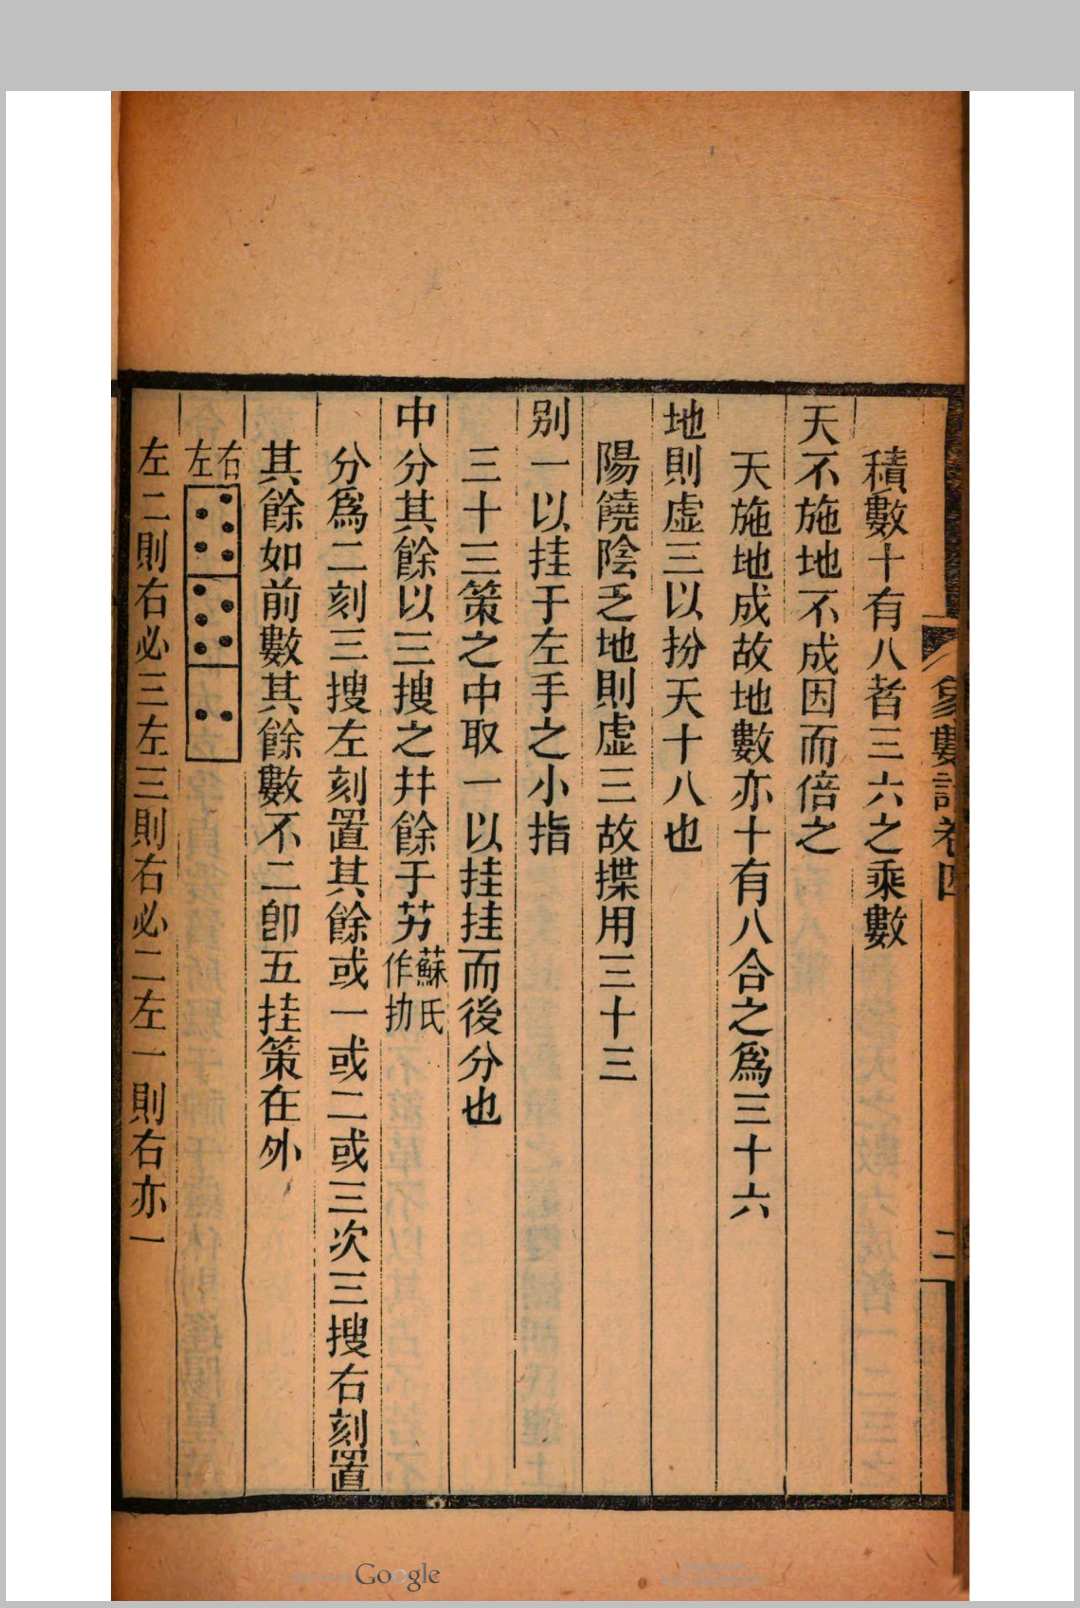 象數論卷四
二
積數十有八者三六之乘數
天不施地不成因而倍之
天施地成故地數亦十有八合之爲三十六
地則虛三以扮天十八也
陽饒陰乏地則虛三故揲用三十三
別一以挂于左手之小指
三十三策之中取一以挂挂而後分也
中分其餘以三搜之并餘于艻蘇氏作扐
分爲二刻三搜左刻置其餘或一或二或三次三搜右刻置
其餘如前數其餘數不二卽五挂策在外
右
左
左二則右必三左三則右必二左一則右亦一
Google